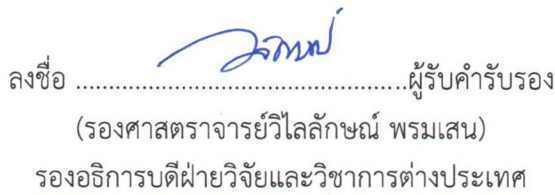 ลงชื่อ ................................................ผู้รับคำรับรอง
(รองศาสตราจารย์วิไลลักษณ์ พรมเสน)
รองอธิการบดีฝ่ายวิจัยและวิชาการต่างประเทศ